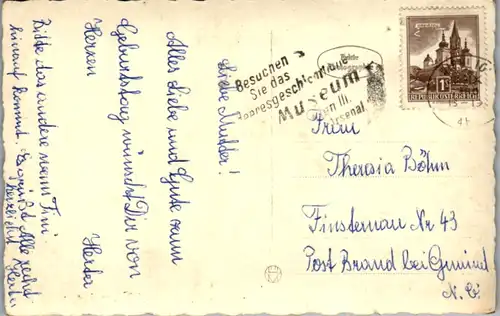 Liebe Mutter!
Alles Liebe und Gute zum
Geburtstag wünscht Dir von
Herzen
Herta
Bitte das andere wenn Fini
hinauf kommt. Es grüßt Alle recht
herzlichst Herta
Besuchen
Sie das
Heeresgeschichtliche
Museum
Wien III,
Arsenal
1S
REPUBLIK ÖSTERREICH
Frau
Theresia Böhm
Finsternau Nr 43
Post Brand bei Gmünd
N.Ö.